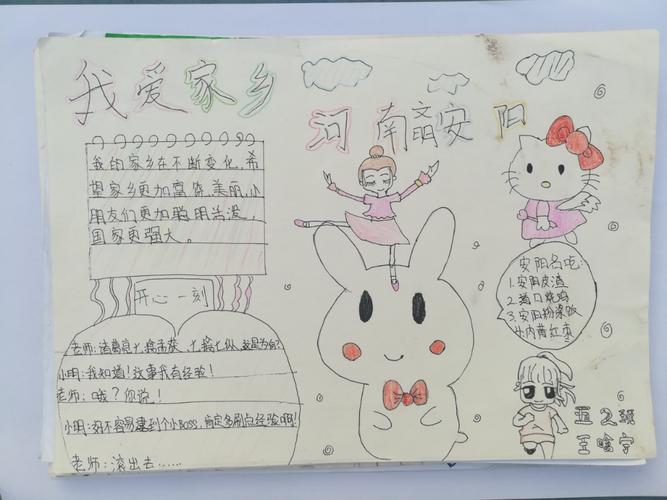 我爱家乡
河南文明安阳
我的家乡在不断变化,希
望家乡更加富饶美丽,小
朋友们更加聪明活泼,
国家更强大。
开心一刻
老师:诸葛亮七擒孟获,七擒七纵,这是为何?
小明:我知道!这事我有经验!
老师:哦?你说!
小明:好不容易逮到个小Boss,肯定多刷点经验啊!
老师:滚出去……
安阳名吃:
1.安阳皮渣
2.道口烧鸡
3.安阳粉浆饭
4.内黄红枣
五2班
王晗宇